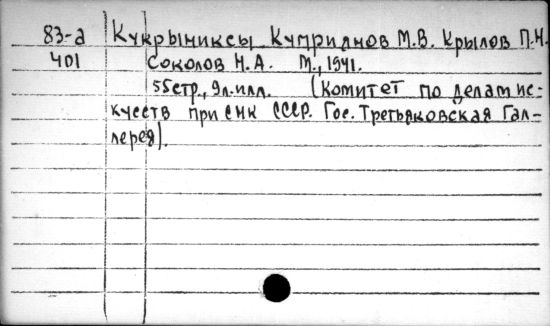 83-а Кукрыниксы Куприянов М.В. Крылов П.Н.
401 Соколов Н.А. М., 1941.
55стр., 9л.илл. (Комитет по делам ис-
кусств при СНК СССР. Гос. Третьяковская Гал-
лерея).